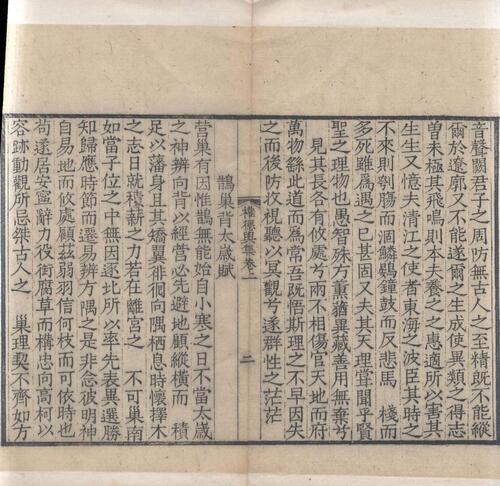 音聲關君子之周防無古人之至精既不能縱
爾於遼廓又不能遂爾之生成使異類之得志
曽未極其飛鳴則本夫養之之惠適所以害其
生生又憶夫清江之使者東海之波臣其時之
不來則刳腸而涸鱗鷄鐘鼓而反悲馬 棧而
多死雖爲遇之已甚固又夫其天理聳聞乎賢
聖之理物也愚智殊方薰蕕異藏善用無棄兮
見其長各有攸處兮兩不相傷官天地而府
萬物繇此道而爲常吾既悟斯理之不早因失
之而後防收視聽以冥觀兮遂群性之茫茫
權德輿集卷一
二
鵲巢背太歲賦
营巢有因惟鵲無能始自小寒之日不當太歲
之神辨向背以經营必先避地顧縱横而 積
足以藩身且其矯翼徘徊向隅栖息時懷擇木
之志日就積薪之力若在離宫之 不可巢南
如當子位之中無因逐北所以率先表異選勝
知歸應時節而遷易辨方隅之是非念彼明神
自易地而攸處顧兹弱羽信何枝而可依時也
苟遂居安寧辭力役銜腐草而構忠向高柯以
容跡動觀所忌桀古人之 巢理契不齊如方